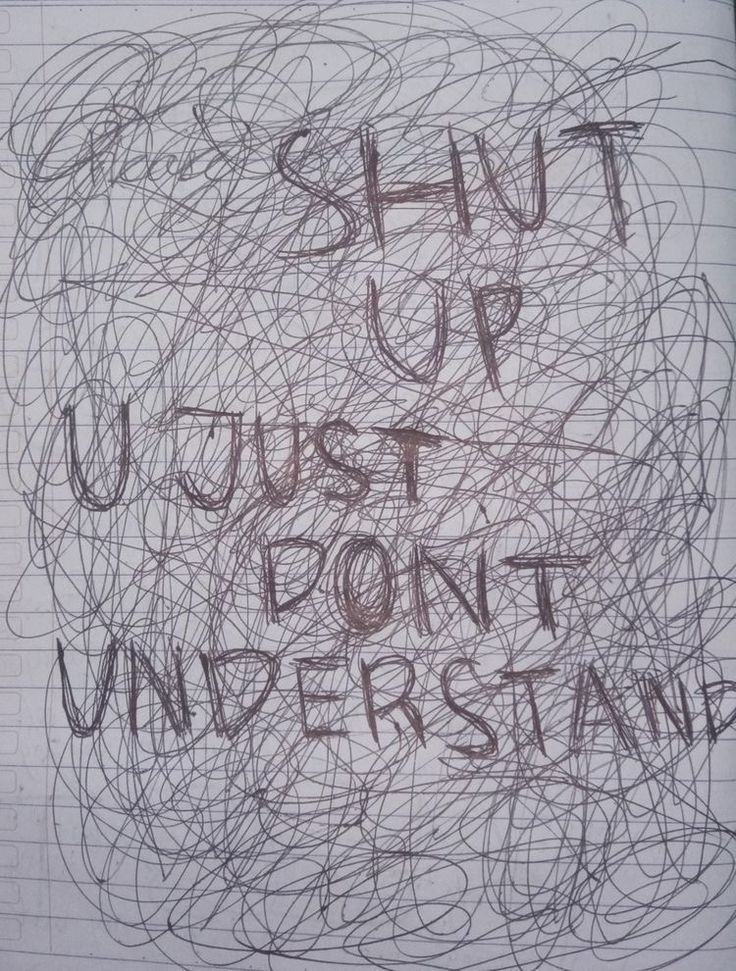 SHUT
UP
U JUST
DONT
UNDERSTAND